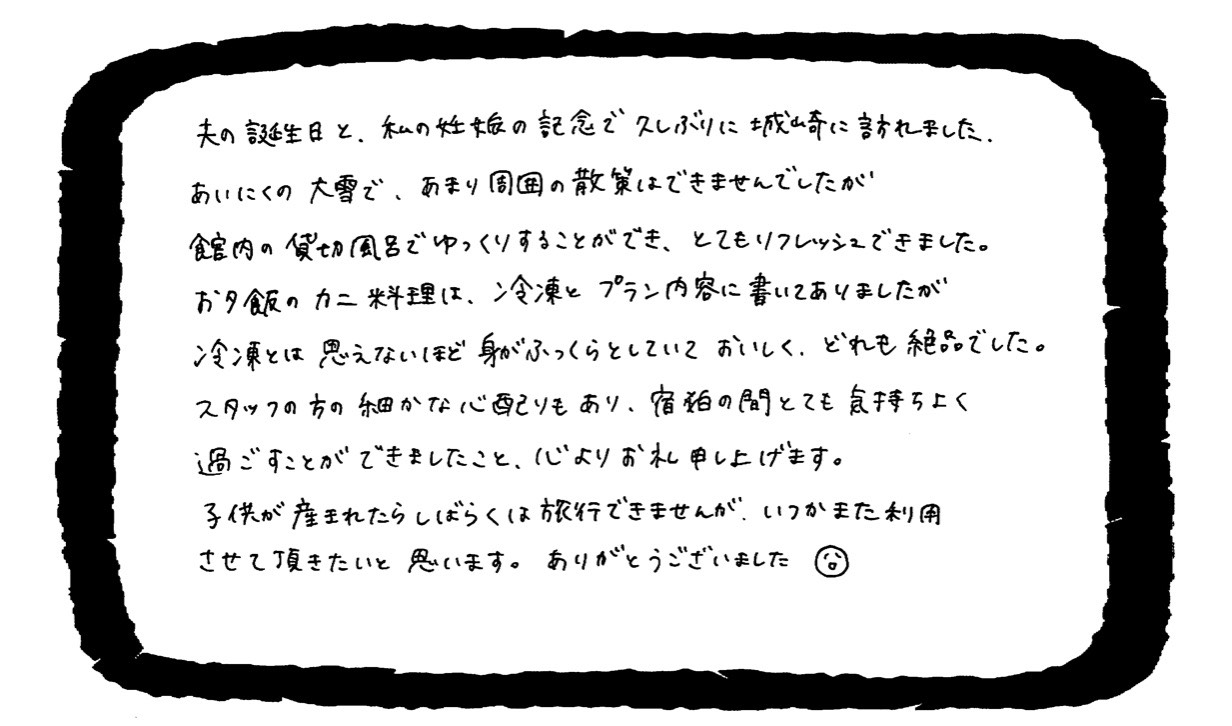 夫の誕生日と、私の妊娠の記念で久しぶりに城崎に訪れました、
あいにくの大雪で、あまり周囲の散策はできませんでしたが
館内の貸切風呂でゆっくりすることができ、とてもリフレッシュできました。
お夕飯のカニ料理は、冷凍とプラン内容に書いてありましたが
冷凍とは思えないほど身がふっくらとしていておいしく、どれも絶品でした。
スタッフの方の細かな心配りもあり、宿泊の間とても気持ちよく
過ごすことができましたこと、心よりお礼申し上げます。
子供が産まれたらしばらくは旅行できませんが、いつかまた利用
させて頂きたいと思います。ありがとうございました